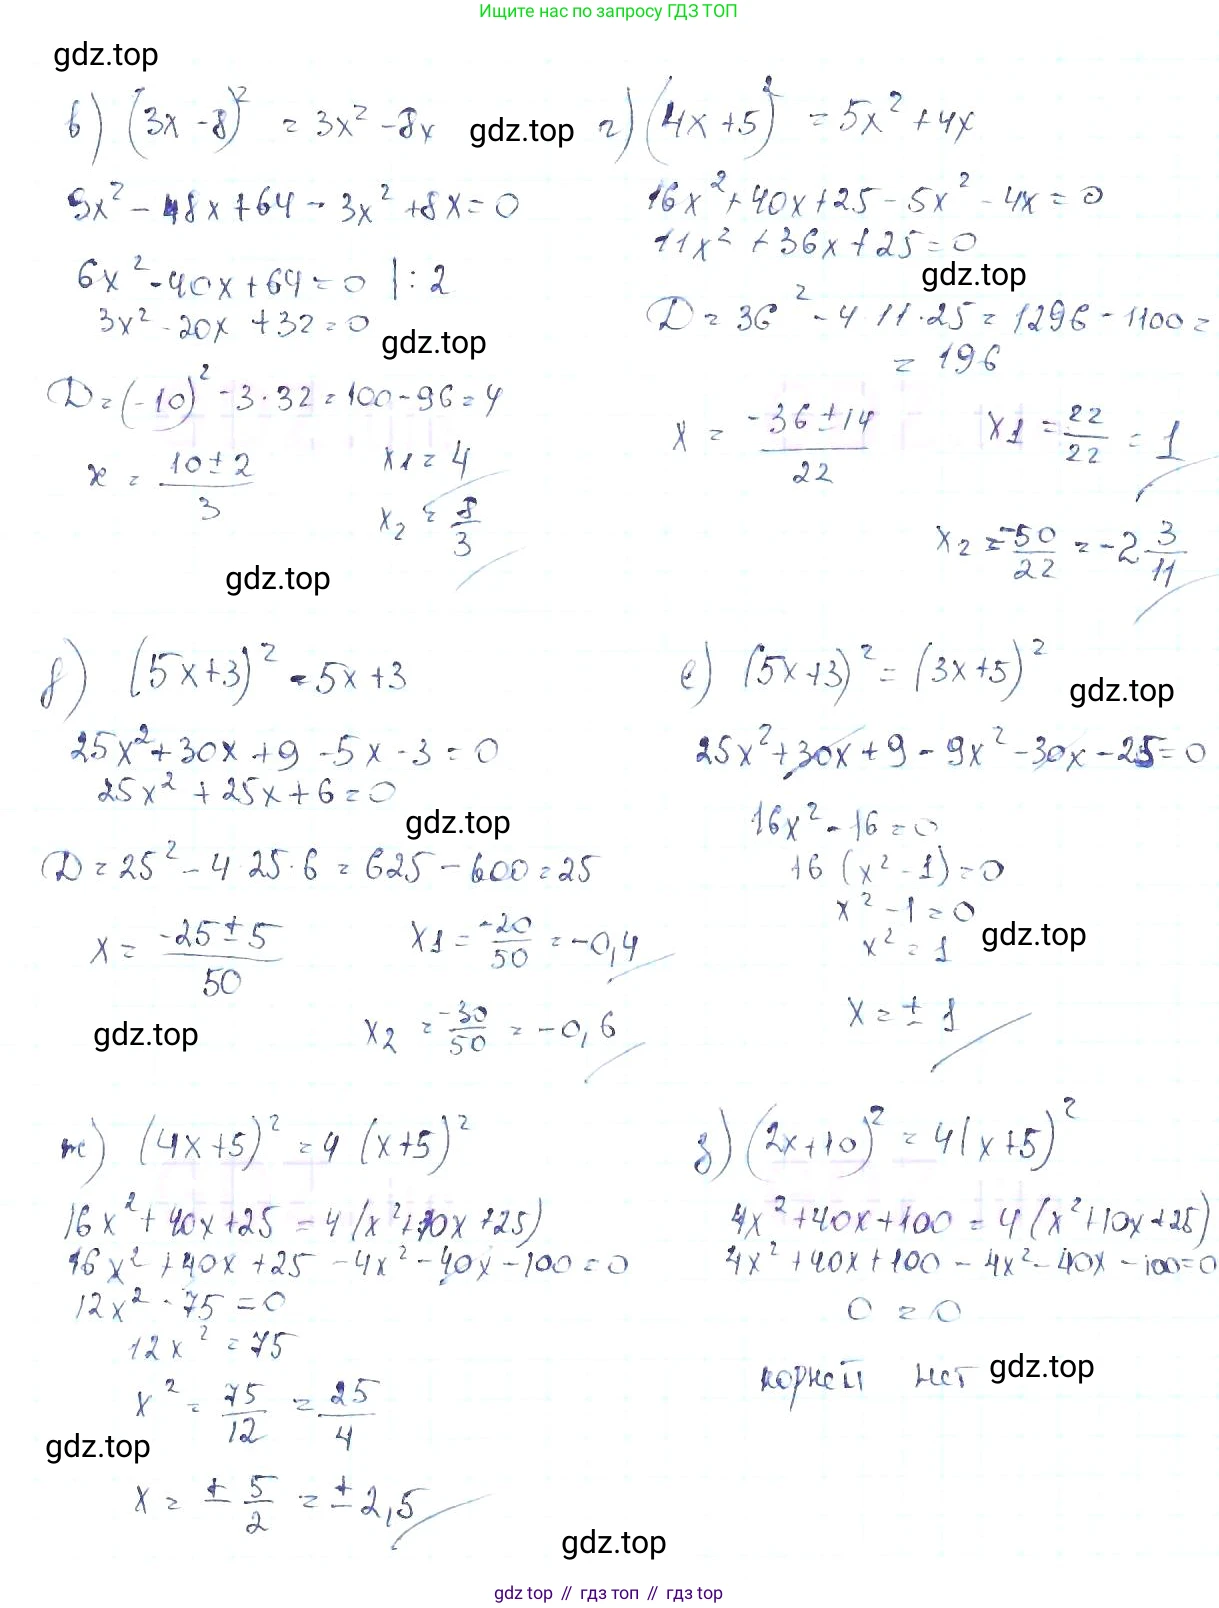 Ищите нас по запросу ГДЗ ТОП
gdz.top
в) (3x - 8)² = 3x² - 8x
gdz.top
9x² - 48x + 64 - 3x² + 8x = 0
6x² - 40x + 64 = 0 | : 2
3x² - 20x + 32 = 0
gdz.top
D = (-10)² - 3·32 = 100 - 96 = 4
x = (10 ± 2)/3
x1 = 4
x2 = 8/3
gdz.top
г) (4x + 5)² = 5x² + 4x
16x² + 40x + 25 - 5x² - 4x = 0
11x² + 36x + 25 = 0
gdz.top
D = 36² - 4·11·25 = 1296 - 1100 =
= 196
x = (-36 ± 14)/22
x1 = 22/22 = 1
x2 = -50/22 = -2 3/11
д) (5x + 3)² = 5x + 3
25x² + 30x + 9 - 5x - 3 = 0
25x² + 25x + 6 = 0
gdz.top
D = 25² - 4·25·6 = 625 - 600 = 25
x = (-25 ± 5)/50
x1 = -20/50 = -0,4
gdz.top
x2 = -30/50 = -0,6
е) (5x + 3)² = (3x + 5)²
gdz.top
25x² + 30x + 9 - 9x² - 30x - 25 = 0
16x² - 16 = 0
16 (x² - 1) = 0
x² - 1 = 0
gdz.top
x² = 1
x = ± 1
ж) (4x + 5)² = 4 (x + 5)²
16x² + 40x + 25 = 4 (x² + 10x + 25)
16x² + 40x + 25 - 4x² - 40x - 100 = 0
12x² - 75 = 0
12x² = 75
x² = 75/12 = 25/4
gdz.top
x = ± 5/2 = ± 2,5
з) (2x + 10)² = 4 (x + 5)²
4x² + 40x + 100 = 4 (x² + 10x + 25)
4x² + 40x + 100 - 4x² - 40x - 100 = 0
0 = 0
корней нет
gdz.top
gdz.top
gdz top // гдз топ // гдз top